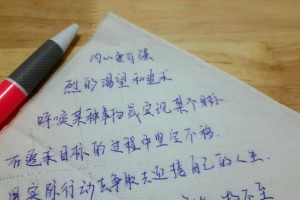 内心要有强
烈的渴望和追求
呼唤某种事物或实现某个目标
在追求目标的过程中坚定不移
用实际行动去争取去迎接自己的人生